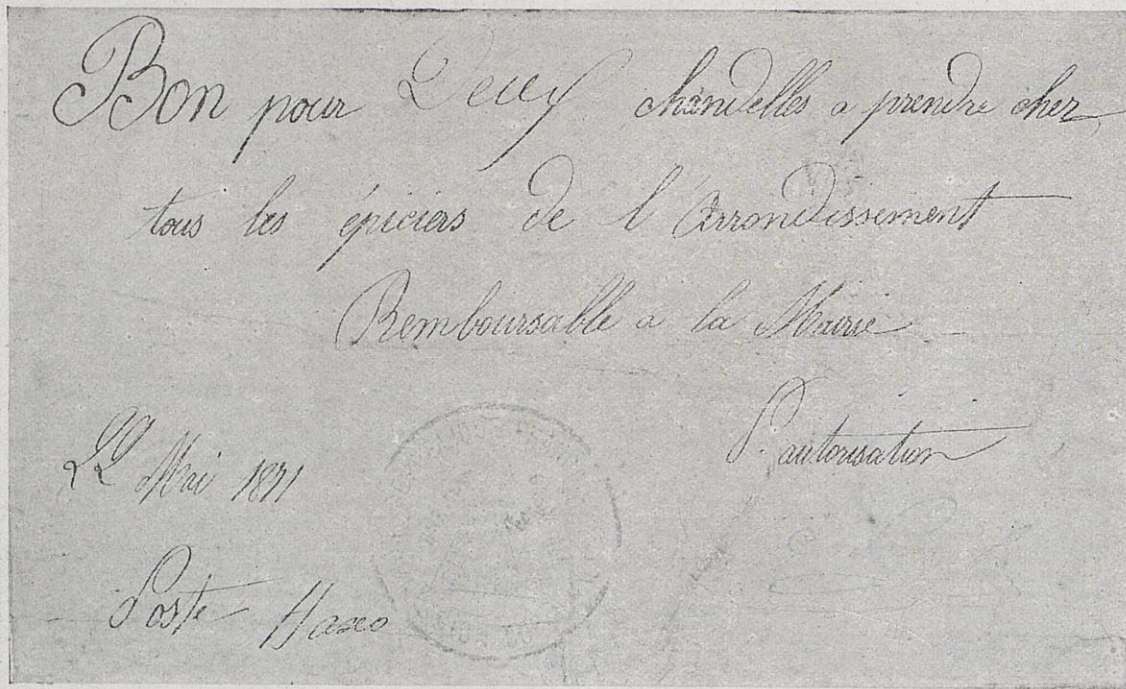 Bon pour Deux chandelles a prendre chez
tous les épiciers de l'Arrondissement
Remboursable a la Mairie
P. autorisation
22 Mai 1871
Poste Haxo